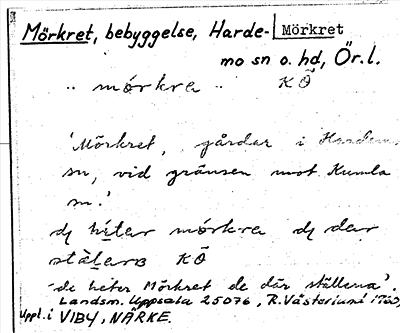 Mörkret, bebyggelse, Harde- Mörkret
mo sn o. hd, Ör. l.
.. mǿrkra .. KÖ
'Mörkret, gårdar i Hardem
sn, vid gränsen mot Kumla
sn.'
hétar mǿrkra dar
stälarə KÖ
-de heter Mörkret de där ställena'.
Landsm. Uppsala 25076, R. Västerlund 1960,
Uppt. i VIBY, NÄRKE.